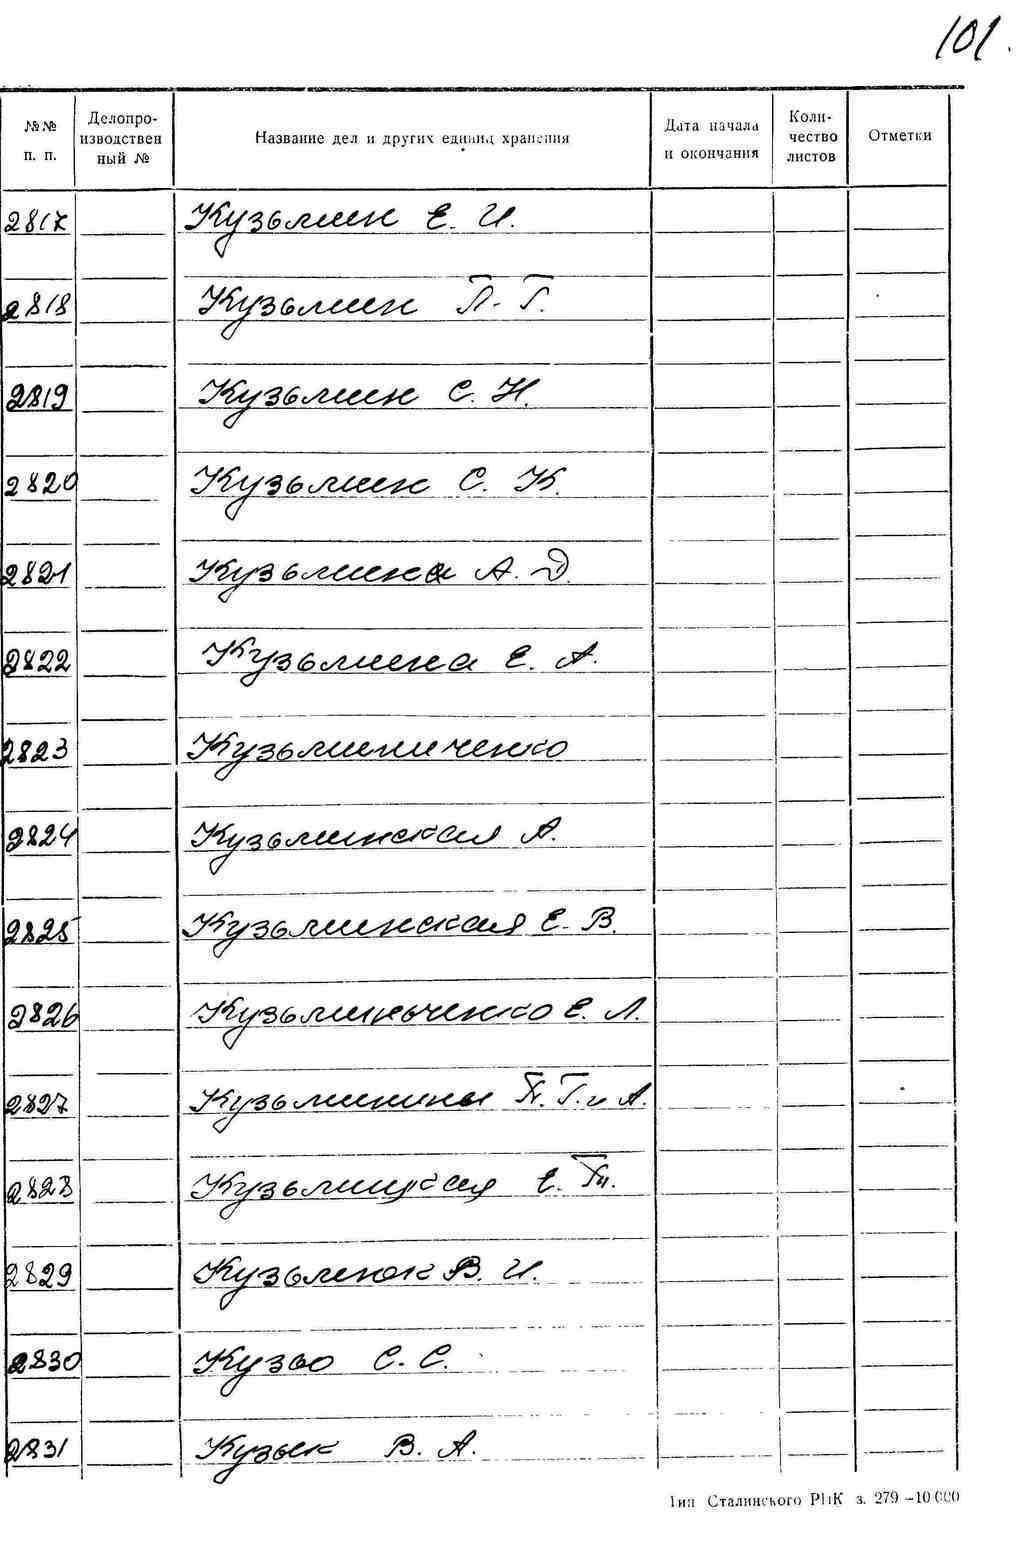 101.
№№ п. п. Делопроизводствен ный № Название дел и других единиц хранения Дата начала и окончания Количество листов Отметки
2817 Кузьмин Е. И.
2818 Кузьмин П. Г.
2819 Кузьмин С. Н.
2820 Кузьмин С. К.
2821 Кузьмина А. Д.
2822 Кузьмина Е. А.
2823 Кузьминиченко
2824 Кузьминская А.
2825 Кузьминская Е. В.
2826 Кузьминьченко Е. Л.
2827 Кузьминины П. Г. и А.
2828 Кузьмицкая Е. Гн.
2829 Кузьменок В. И.
2830 Кузьо С. С.
2831 Кузьек В. А.
Тип Сталинского РИК з. 279 -10 000